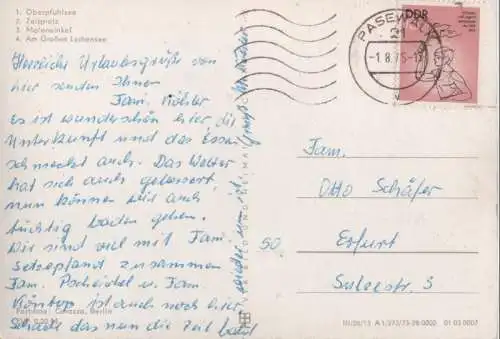 1. Oberpfuhlsee
2. Zeltplatz
3. Malerwinkel
4. Am Großen Lychensee
Herzliche Urlaubsgrüße von
hier senden Ihnen
Fam. Köhler
Es ist wunderschön hier die
Unterkunft und das Essen
schmeckt auch. Das Wetter
hat sich auch gebessert,
nun können wir auch
tüchtig baden gehen.
Wir sind viel mit Fam.
zusammen
Fam. u. Fam.
ist auch noch hier
Schade das nun die Zeit bald
Berlin
50.
PASEWALK
-1.8.75-1
DDR
Fam.
Otto Schäfer
Erfurt
3
III/26/13 A 1/372/75-28 0000 01 03 0007